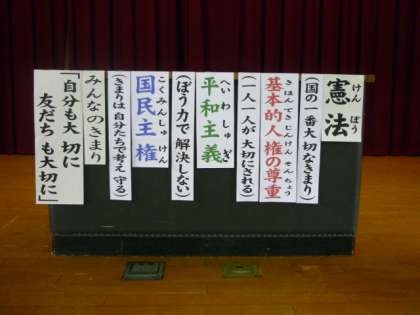 憲法
けんぽう
(国の一番大切なきまり)
基本的人権の尊重
きほんてきじんけんそんちょう
(一人一人が大切にされる)
平和主義
へいわしゅぎ
(ぼう力で解決しない)
国民主権
こくみんしゅけん
(きまりは自分たちで考え守る)
みんなのきまり
「自分も大切に
友だちも大切に」